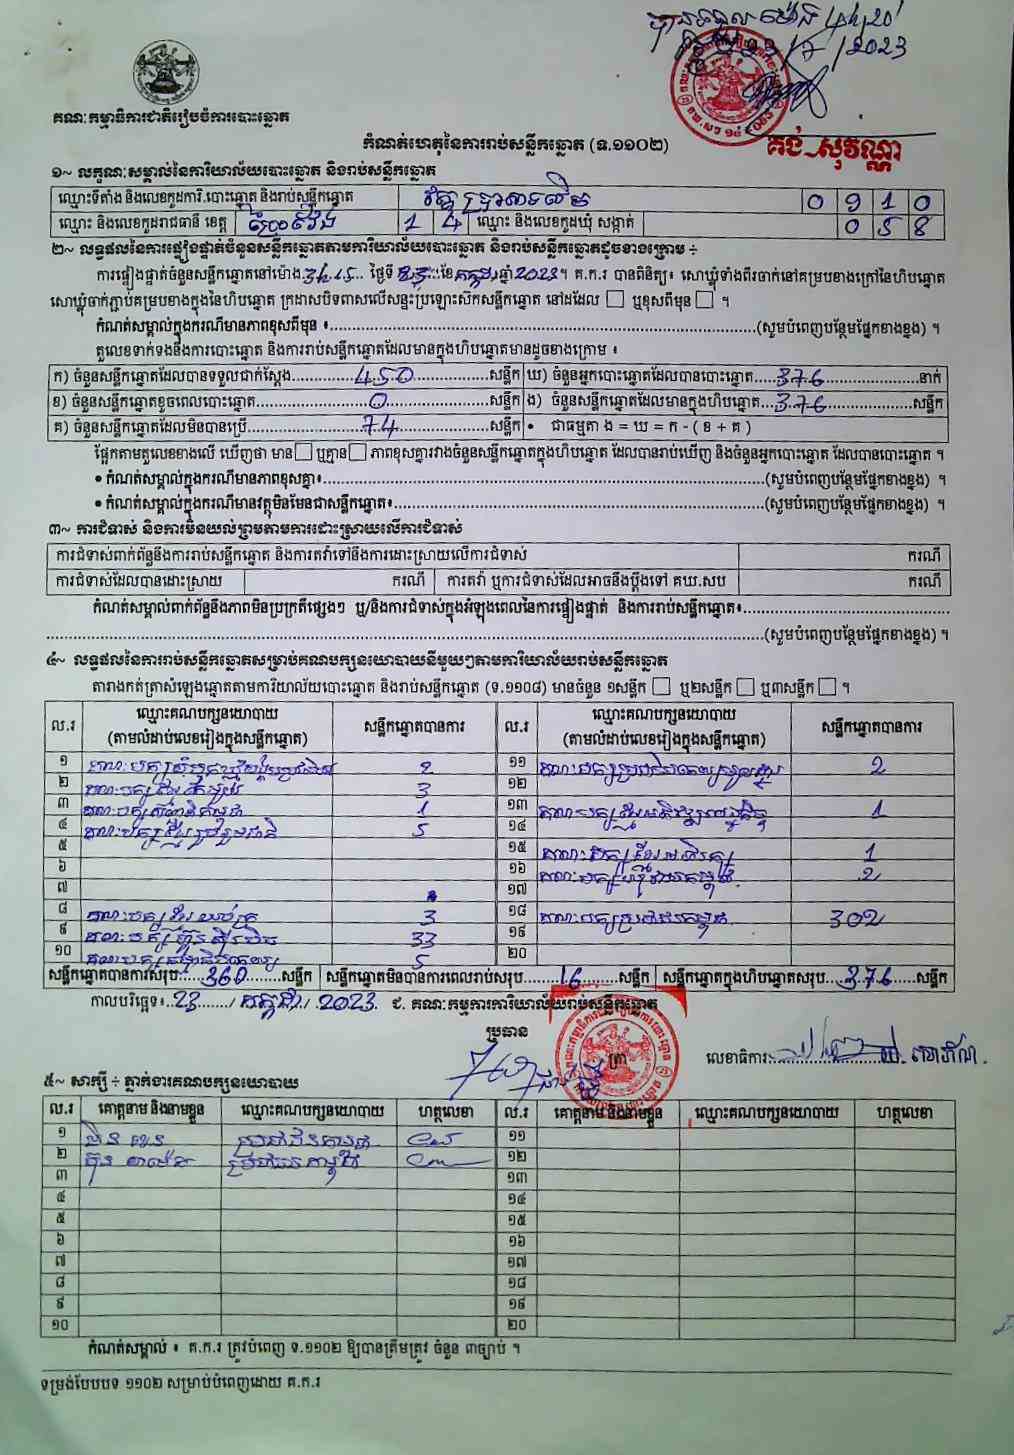 4h20'
/7/2023
គណៈកម្មាធិការជាតិរៀបចំការបោះឆ្នោត
កំណត់ហេតុនៃការរាប់សន្លឹកឆ្នោត (ទ.១១០២)
គង់ សុវណ្ណា
១~ លក្ខណៈសម្គាល់នៃការិយាល័យបោះឆ្នោត និងរាប់សន្លឹកឆ្នោត
ឈ្មោះទីតាំង និងលេខកូដការិ.បោះឆ្នោត និងរាប់សន្លឹកឆ្នោត 0 9 1 0
ឈ្មោះ និងលេខកូដរាជធានី ខេត្ត ព្រៃវែង 1 4 ឈ្មោះ និងលេខកូដឃុំ សង្កាត់ 0 5 8
២~ លទ្ធផលនៃការផ្ទៀងផ្ទាត់ចំនួនសន្លឹកឆ្នោតតាមការិយាល័យបោះឆ្នោត និងរាប់សន្លឹកឆ្នោតដូចខាងក្រោម ÷
ការផ្ទៀងផ្ទាត់ចំនួនសន្លឹកឆ្នោតនៅម៉ោង 3h15 ថ្ងៃទី 23 ខែ កក្កដា ឆ្នាំ 2023 ។ គ.ក.រ បានពិនិត្យ៖ សោឃ្លុំទាំងពីរចាក់នៅគម្របខាងក្រៅនៃហិបឆ្នោត
សោឃ្លុំចាក់ភ្ជាប់គម្របខាងក្នុងនៃហិបឆ្នោត ក្រដាសបិទពាសលើសន្ទះប្រឡោះស៊កសន្លឹកឆ្នោត នៅដដែល □ ឬខុសពីមុន □ ។
កំណត់សម្គាល់ក្នុងករណីមានភាពខុសពីមុន ៖ (សូមបំពេញបន្ថែមផ្នែកខាងខ្នង) ។
តួលេខទាក់ទងនឹងការបោះឆ្នោត និងការរាប់សន្លឹកឆ្នោតដែលមានក្នុងហិបឆ្នោតមានដូចខាងក្រោម ៖
ក) ចំនួនសន្លឹកឆ្នោតដែលបានទទួលជាក់ស្តែង 450 សន្លឹក ឃ) ចំនួនអ្នកបោះឆ្នោតដែលបានបោះឆ្នោត 376 នាក់
ខ) ចំនួនសន្លឹកឆ្នោតខូចពេលបោះឆ្នោត 0 សន្លឹក ង) ចំនួនសន្លឹកឆ្នោតដែលមានក្នុងហិបឆ្នោត 376 សន្លឹក
គ) ចំនួនសន្លឹកឆ្នោតដែលមិនបានប្រើ 74 សន្លឹក • ជាធម្មតា ង = ឃ = ក - ( ខ + គ )
ផ្អែកតាមតួលេខខាងលើ ឃើញថា មាន □ ឬគ្មាន □ ភាពខុសគ្នារវាងចំនួនសន្លឹកឆ្នោតក្នុងហិបឆ្នោត ដែលបានរាប់ឃើញ និងចំនួនអ្នកបោះឆ្នោត ដែលបានបោះឆ្នោត ។
• កំណត់សម្គាល់ក្នុងករណីមានភាពខុសគ្នា៖ (សូមបំពេញបន្ថែមផ្នែកខាងខ្នង) ។
• កំណត់សម្គាល់ក្នុងករណីមានវត្ថុមិនមែនជាសន្លឹកឆ្នោត៖ (សូមបំពេញបន្ថែមផ្នែកខាងខ្នង) ។
៣~ ការជំទាស់ និងការមិនយល់ព្រមតាមការដោះស្រាយលើការជំទាស់
ការជំទាស់ពាក់ព័ន្ធនឹងការរាប់សន្លឹកឆ្នោត និងការតវ៉ាទៅនឹងការដោះស្រាយលើការជំទាស់ ករណី
ការជំទាស់ដែលបានដោះស្រាយ ករណី ការតវ៉ា ឬការជំទាស់ដែលអាចនឹងប្តឹងទៅ គឃ.សប ករណី
កំណត់សម្គាល់ពាក់ព័ន្ធនឹងភាពមិនប្រក្រតីផ្សេងៗ ឬ/និងការជំទាស់ក្នុងអំឡុងពេលនៃការផ្ទៀងផ្ទាត់ និងការរាប់សន្លឹកឆ្នោត៖
(សូមបំពេញបន្ថែមផ្នែកខាងខ្នង) ។
៤~ លទ្ធផលនៃការរាប់សន្លឹកឆ្នោតសម្រាប់គណបក្សនយោបាយនីមួយៗតាមការិយាល័យរាប់សន្លឹកឆ្នោត
តារាងកត់ត្រាសំឡេងឆ្នោតតាមការិយាល័យបោះឆ្នោត និងរាប់សន្លឹកឆ្នោត (ទ.១១០៨) មានចំនួន ១សន្លឹក □ ឬ២សន្លឹក □ ឬ៣សន្លឹក □ ។
ល.រ ឈ្មោះគណបក្សនយោបាយ សន្លឹកឆ្នោតបានការ ល.រ ឈ្មោះគណបក្សនយោបាយ សន្លឹកឆ្នោតបានការ
(តាមលំដាប់លេខរៀងក្នុងសន្លឹកឆ្នោត) (តាមលំដាប់លេខរៀងក្នុងសន្លឹកឆ្នោត)
១ 2 ១១ 2
២ 3 ១២
៣ 1 ១៣ 1
៤ 5 ១៤
៥ ១៥ 1
៦ ១៦ 2
៧ ១៧
៨ 3 ១៨ គណបក្សប្រជាជនកម្ពុជា 302
៩ គណបក្សហ្វ៊ុនស៊ិនប៉ិច 33 ១៩
១០ 5 ២០
សន្លឹកឆ្នោតបានការសរុប: 360 សន្លឹក សន្លឹកឆ្នោតមិនបានការពេលរាប់សរុប 16 សន្លឹក សន្លឹកឆ្នោតក្នុងហិបឆ្នោតសរុប 376 សន្លឹក
កាលបរិច្ឆេទ៖ 23 / កក្កដា / 2023 ជ. គណៈកម្មការការិយាល័យរាប់សន្លឹកឆ្នោត
ប្រធាន
ត្រា លេខាធិការ:
៥~ សាក្សី ÷ ភ្នាក់ងារគណបក្សនយោបាយ
ល.រ គោត្តនាម និងនាមខ្លួន ឈ្មោះគណបក្សនយោបាយ ហត្ថលេខា ល.រ គោត្តនាម និងនាមខ្លួន ឈ្មោះគណបក្សនយោបាយ ហត្ថលេខា
១ ប្រជាជនកម្ពុជា ១១
២ ប្រជាជនកម្ពុជា ១២
៣ ១៣
៤ ១៤
៥ ១៥
៦ ១៦
៧ ១៧
៨ ១៨
៩ ១៩
១០ ២០
កំណត់សម្គាល់ ៖ គ.ក.រ ត្រូវបំពេញ ទ.១១០២ ឱ្យបានត្រឹមត្រូវ ចំនួន ៣ច្បាប់ ។
ទម្រង់បែបបទ ១១០២ សម្រាប់បំពេញដោយ គ.ក.រ